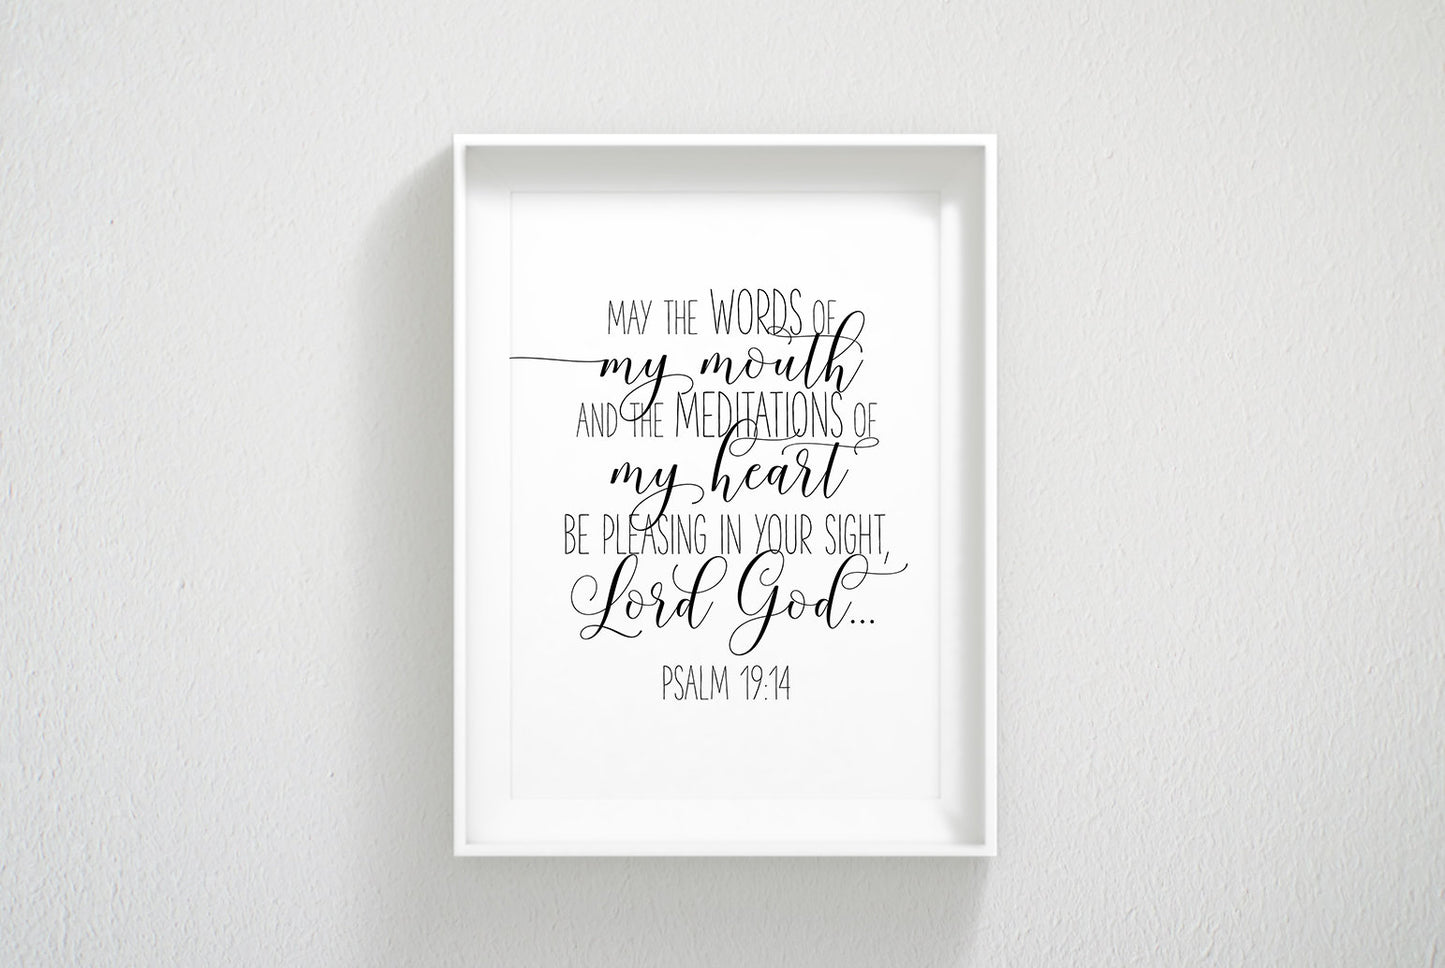 MAY THE WORDS OF
my mouth
AND THE MEDITATIONS OF
my heart
BE PLEASING IN YOUR SIGHT,
Lord God...
PSALM 19:14